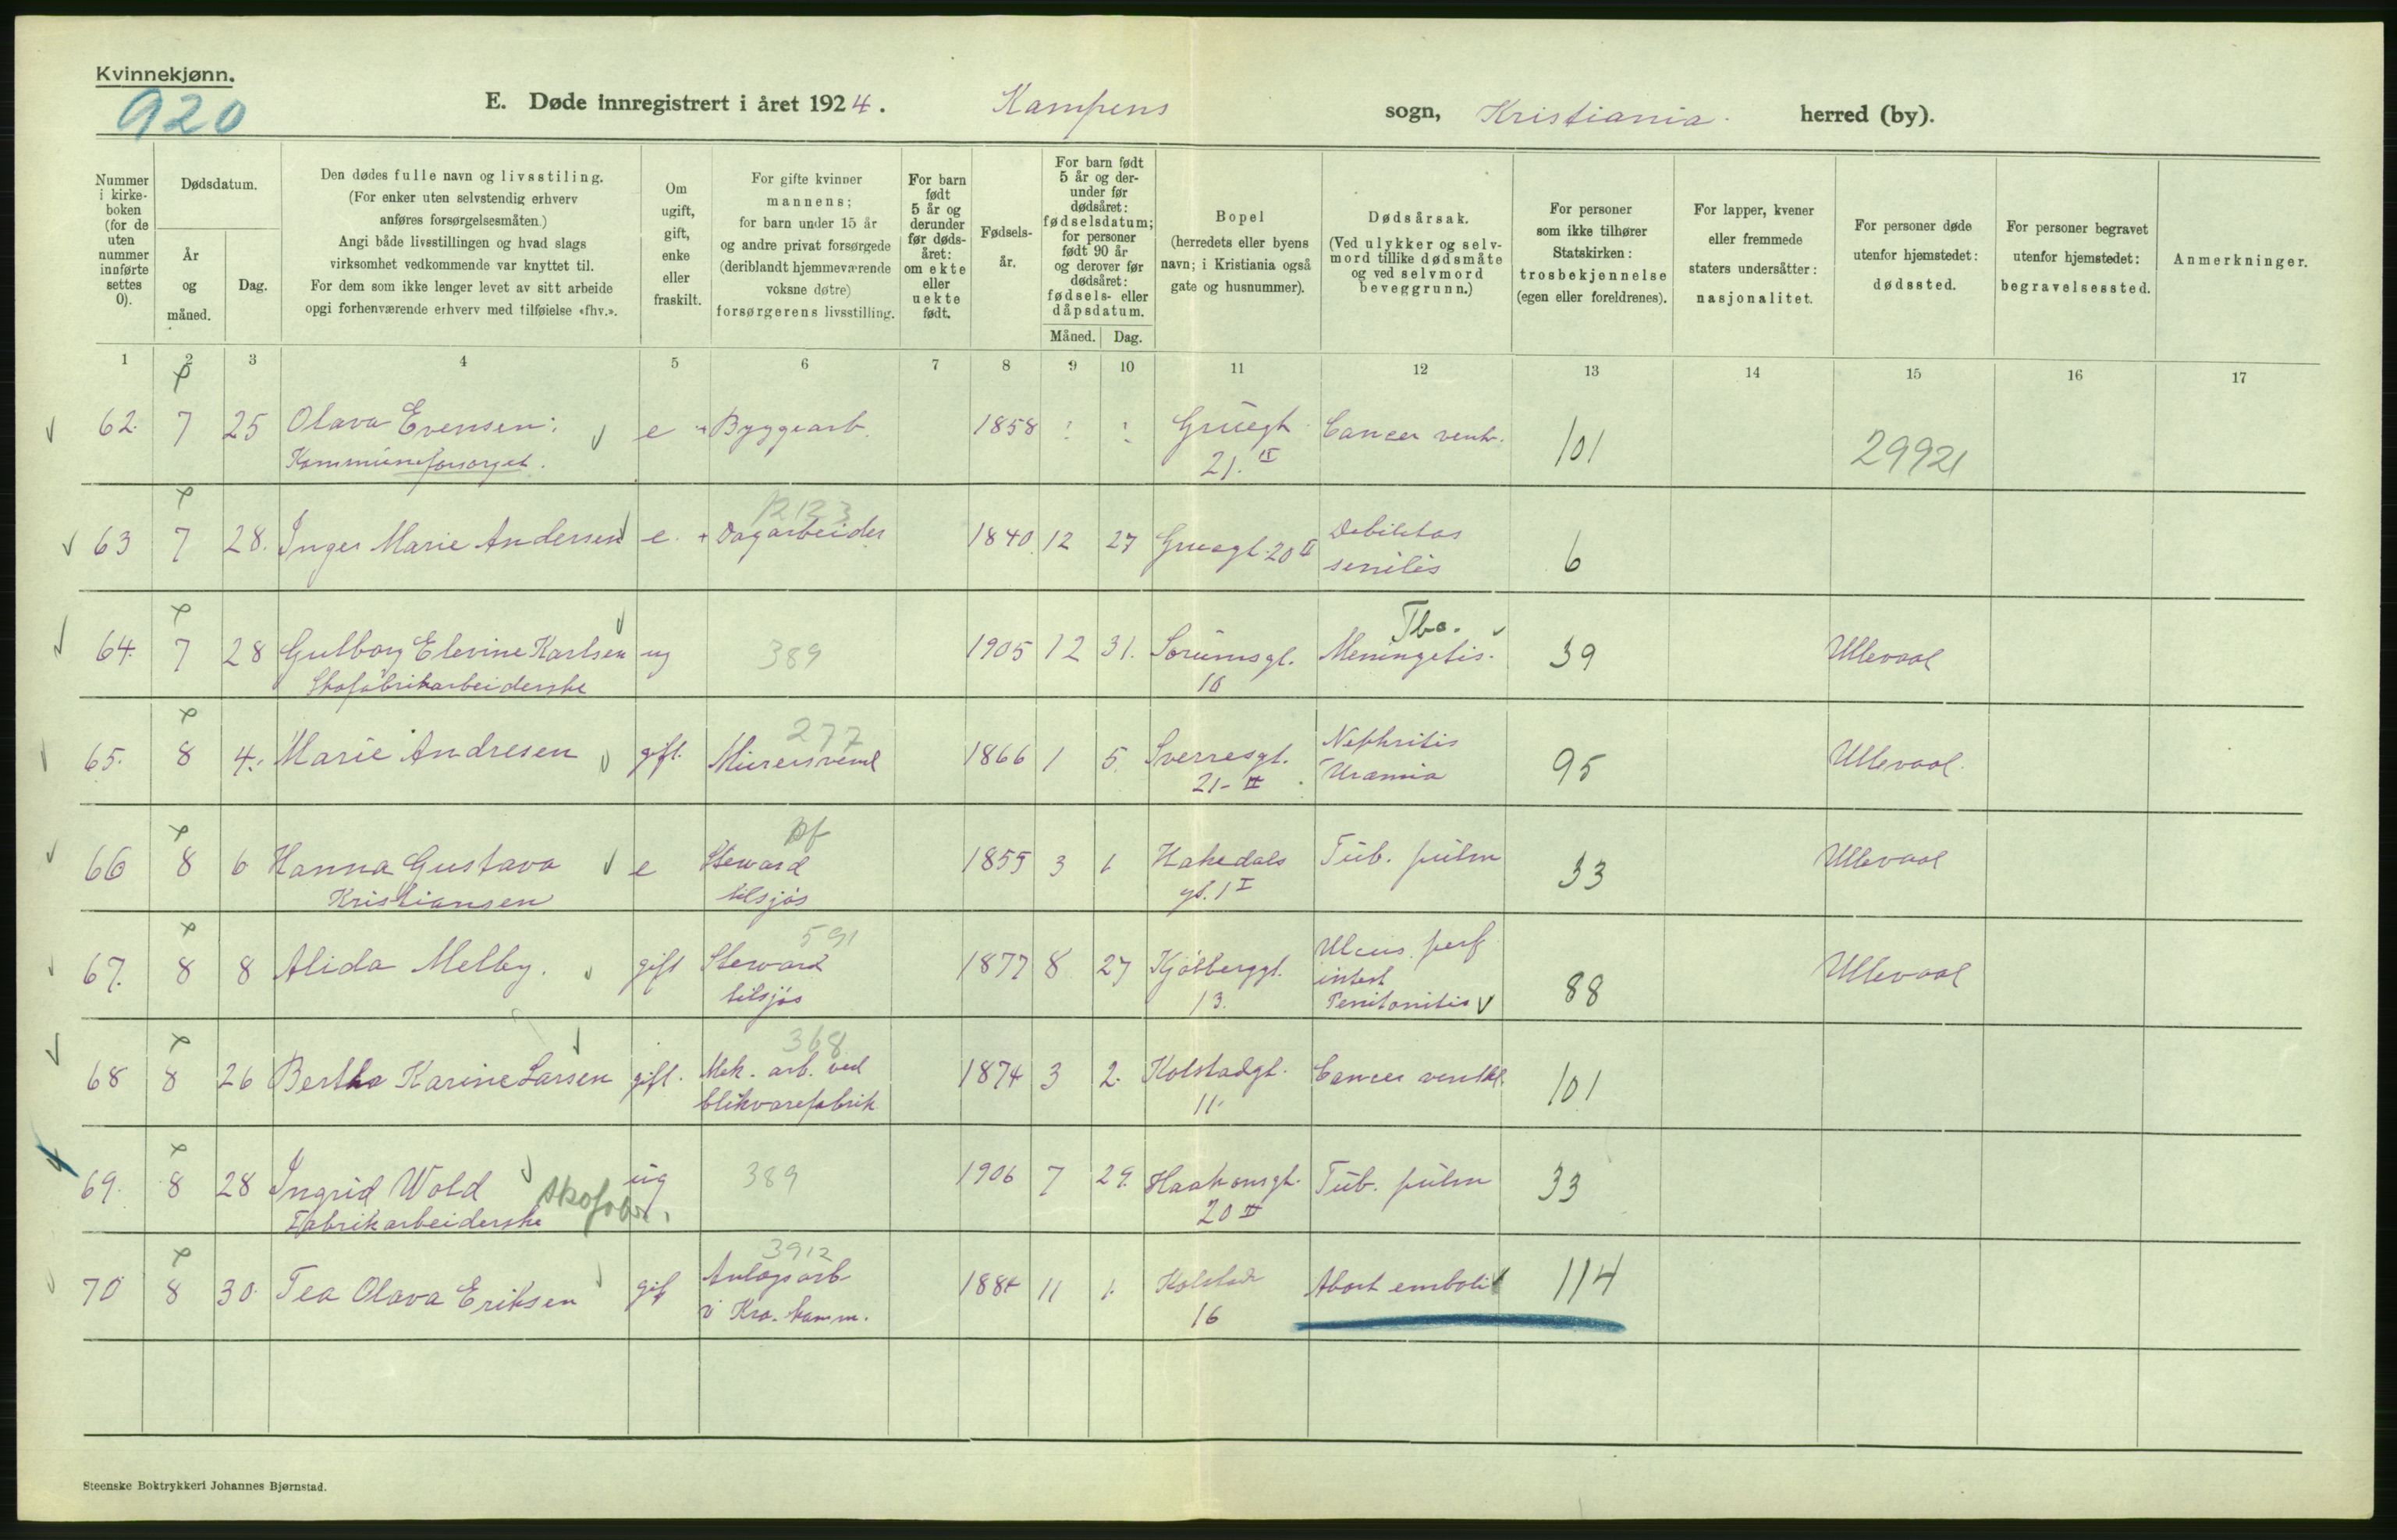 Kvinnekjønn.
920
E. Døde innregistrert i året 1924. Kampens sogn, Kristiania. herred (by).
Nummer i kirke- boken (for de uten nummer innførte settes 0).
Dødsdatum.
År og måned.
Dag.
Den dødes fulle navn og livsstiling.
(For enker uten selvstendig erhverv
anføres forsørgelsesmåten.)
Angi både livsstillingen og hvad slags
virksomhet vedkommende var knyttet til.
For dem som ikke lenger levet av sitt arbeide
opgi forhenværende erhverv med tilføielse «fhv.».
Om ugift, gift, enke eller fraskilt.
For gifte kvinner
mannens;
for barn under 15 år
og andre privat forsørgede
(deriblandt hjemmeværende
voksne døtre)
forsørgerens livsstilling.
For barn født 5 år og derunder før døds- året: om ekte eller uekte født.
Fødsels- år.
For barn født 5 år og der- under før dødsåret: fødselsdatum; for personer født 90 år og derover før dødsåret: fødsels- eller dåpsdatum.
Måned. Dag.
Bopel
(herredets eller byens
navn; i Kristiania også
gate og husnummer).
Dødsårsak.
(Ved ulykker og selv-
mord tillike dødsmåte
og ved selvmord
beveggrunn.)
For personer
som ikke tilhører
Statskirken:
trosbekjennelse
(egen eller foreldrenes).
For lapper, kvener
eller fremmede
staters undersåtter:
nasjonalitet.
For personer døde
utenfor hjemstedet:
dødssted.
For personer begravet
utenfor hjemstedet:
begravelsessted.
Anmerkninger.
1 2 3 4 5 6 7 8 9 10 11 12 13 14 15 16 17
62. 7 25 Olava Evensen. e Byggearb. 1858 : : Grüegt. Cancer ventr. 101 29921
Kommüneforsørget. 21. II
63 7 28. Inger Marie Andersen e. + Dagarbeider 1840 12 27 Gruegt. 20 II Debilitas 6
senilis
64. 7 28 Gulborg Elevine Karlsen ug 389 1905 12 31. Sørümsgt. Tbc. Meningitis. 39 Ullevaal
Skofabrikarbeiderske 10
277
65. 8 4. Marie Andresen gift. Mürersvend 1866 1 5. Sverresgt. Nephritis 95 Ullevaal.
21- II Uræmia
66 8 6 Hanna Gustava e Steward 1855 3 1. Hakedals Tüb. pülm 33 Ullevaal
Kristiansen tilsjøs gt. 1 I
591
67. 8 8 Alida Melby. gift Steward 1877 8 27 Kjølberggt. Ulcus. perf. 88 Ullevaal
tilsjøs 13. intest
Peritonitis
368
68 8 26 Bertha Karine Larsen gift. Mek. arb. ved 1874 3 2. Kolstadgt. Cancer ventkl. 101
blikvarefabrik 11.
69. 8 28 Ingrid Wold üg 389 1906 7 29. Haakonsgt. Tüb. pülm 33
Fabrikarbeiderske Skofabr. 20 II
3912
70 8 30. Tea Olava Eriksen gif Anlagsarb 11 1. Kolstad 114
v Kra. komm. 16 Abort emboli
Steenske Boktrykkeri Johannes Bjørnstad.